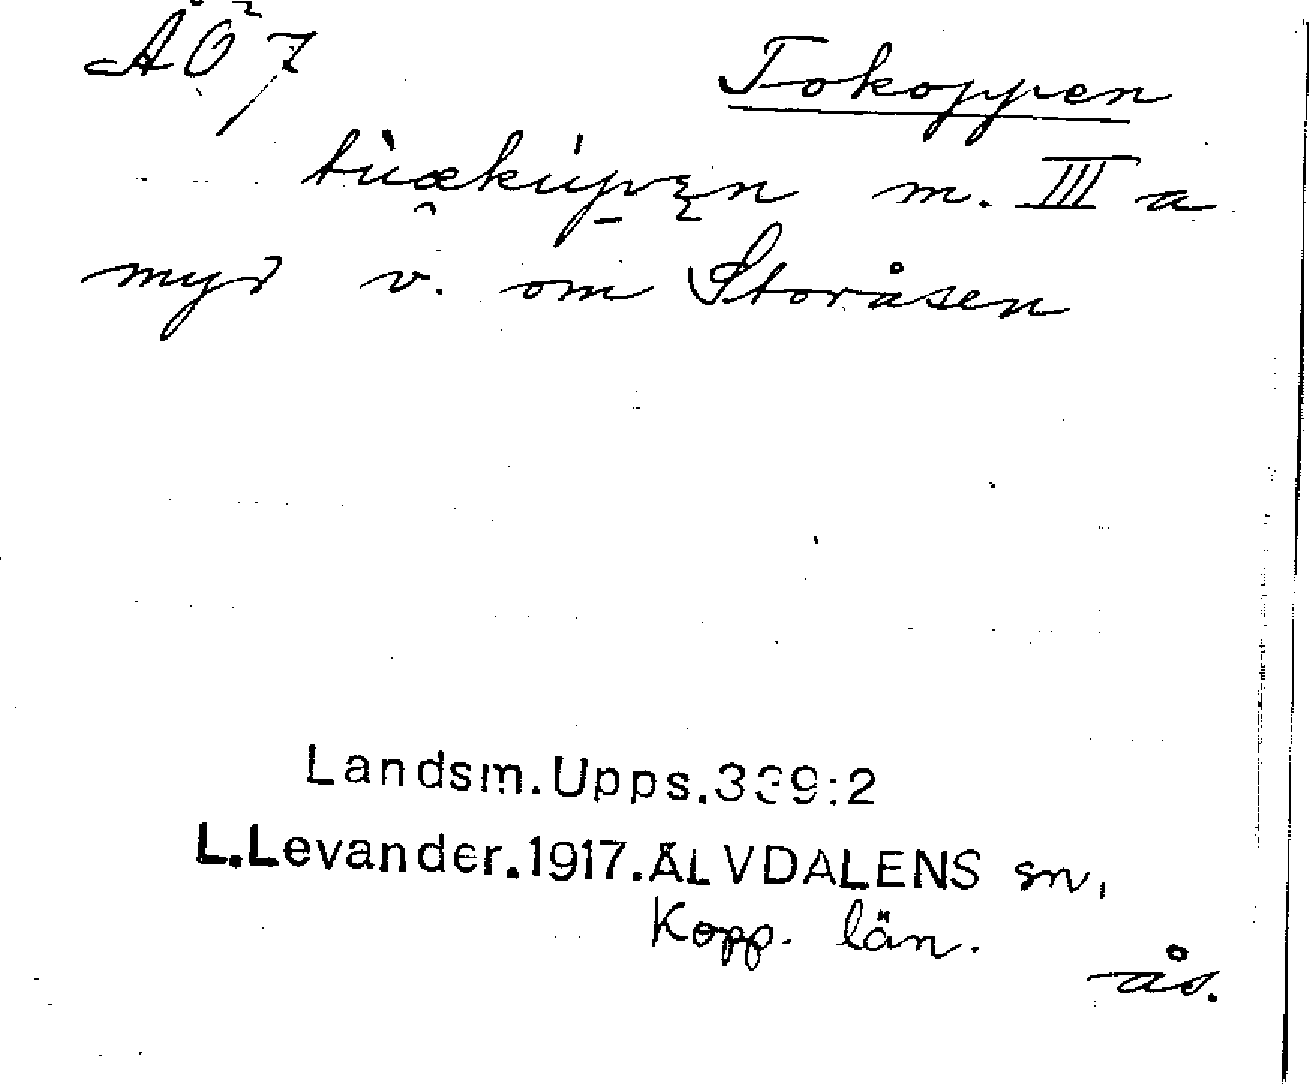 ÅÖ 7
Tokoppen
tùækúpen m. III a
myr v. om Storåsen
Landsm.Upps.339:2
L.Levander.1917.ÄLVDALENS sn.
Kopp. län.
ås.